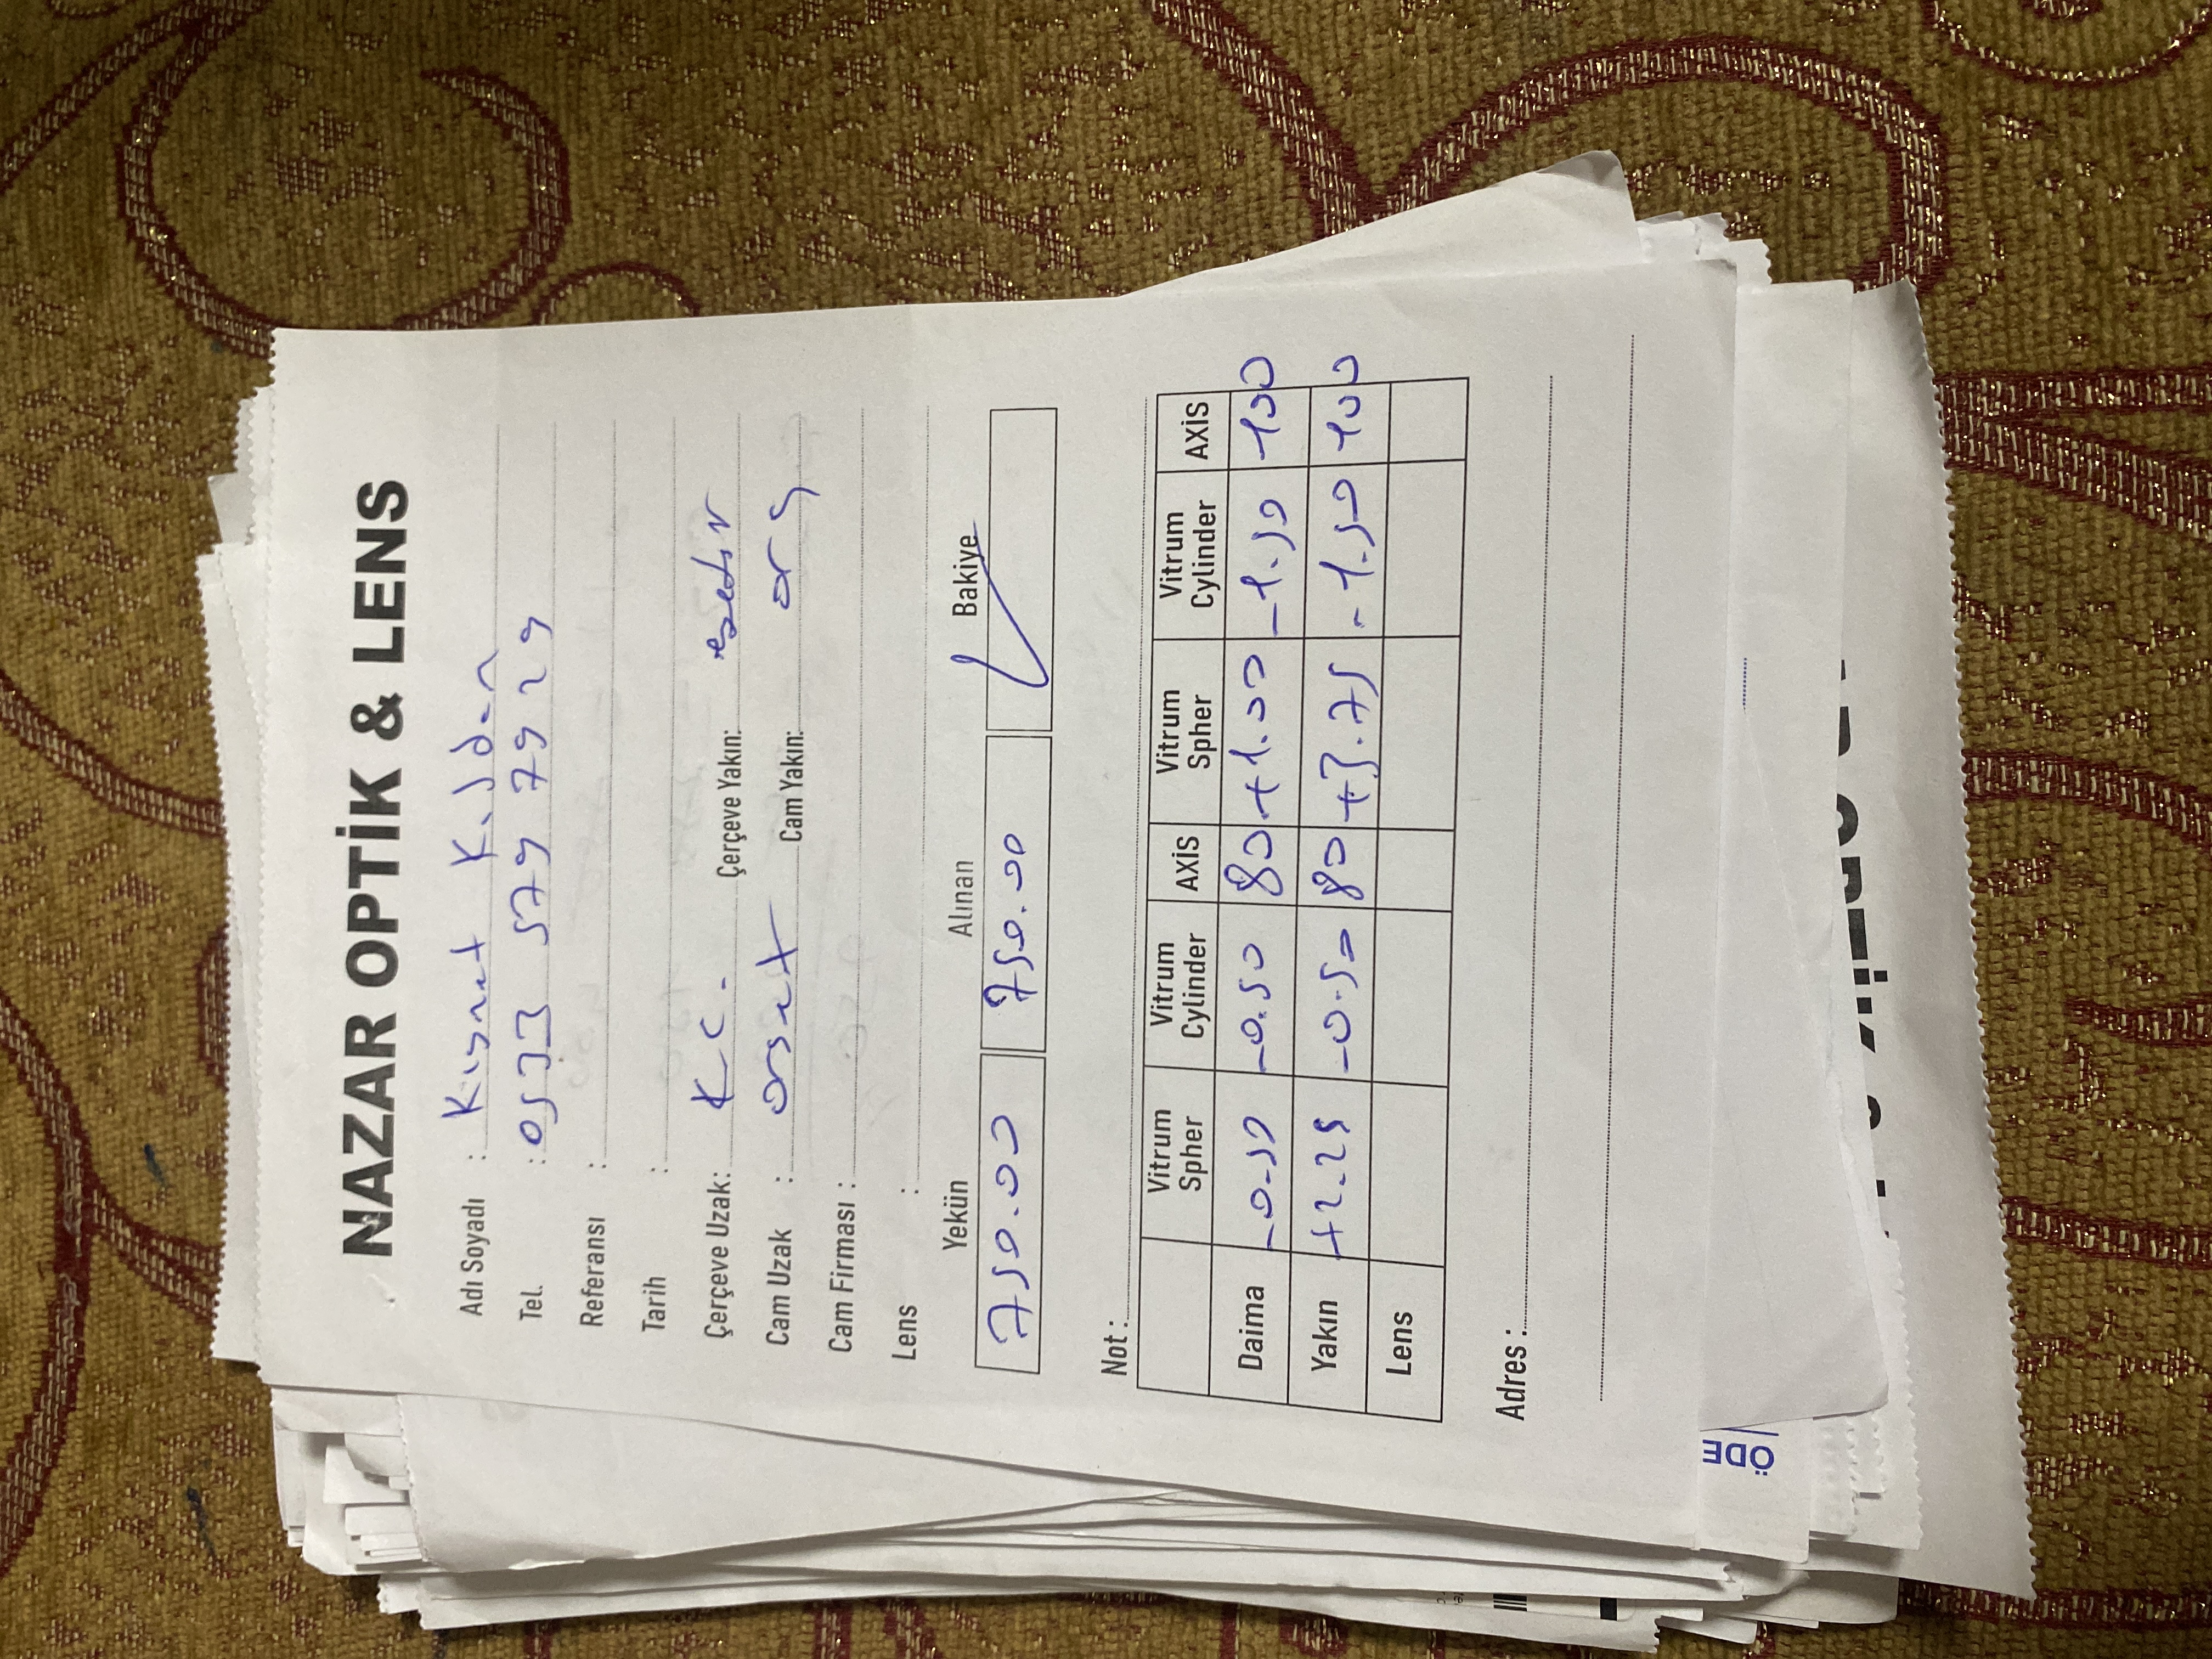 NAZAR OPTİK & LENS
Adı Soyadı : Kısmet
Tel. : 0533 579 7929
Referansı :
Tarih :
Çerçeve Uzak: K C. Çerçeve Yakın:
Cam Uzak : Cam Yakın: org
Cam Firması :
Lens :
Yekün Alınan Bakiye
750.00 750.00
Not :
Vitrum Spher Vitrum Cylinder AXİS Vitrum Spher Vitrum Cylinder AXİS
Daima -0.50 -0.50 80 +1.00 -1.50 100
Yakın +2.25 -0.50 80 +3.75 -1.50 100
Lens
Adres :
ÖDE